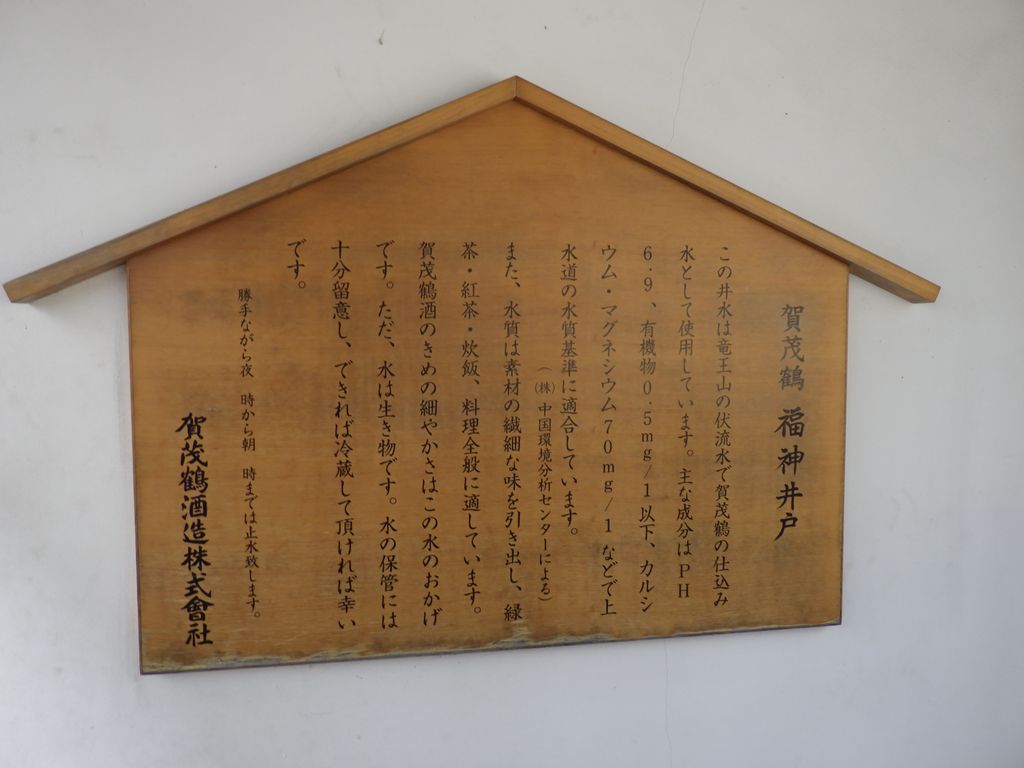 賀茂鶴 福神井戸
この井水は竜王山の伏流水で賀茂鶴の仕込み
水として使用しています。主な成分はPH
6.9、有機物0.5mg/1以下、カルシ
ウム・マグネシウム70mg/1などで上
水道の水質基準に適合しています。
(㈱中国環境分析センターによる)
また、水質は素材の繊細な味を引き出し、緑
茶・紅茶・炊飯、料理全般に適しています。
賀茂鶴酒のきめの細やかさはこの水のおかげ
です。ただ、水は生き物です。水の保管には
十分留意し、できれば冷蔵して頂ければ幸い
です。
勝手ながら夜 時から朝 時までは止水致します。
賀茂鶴酒造株式會社